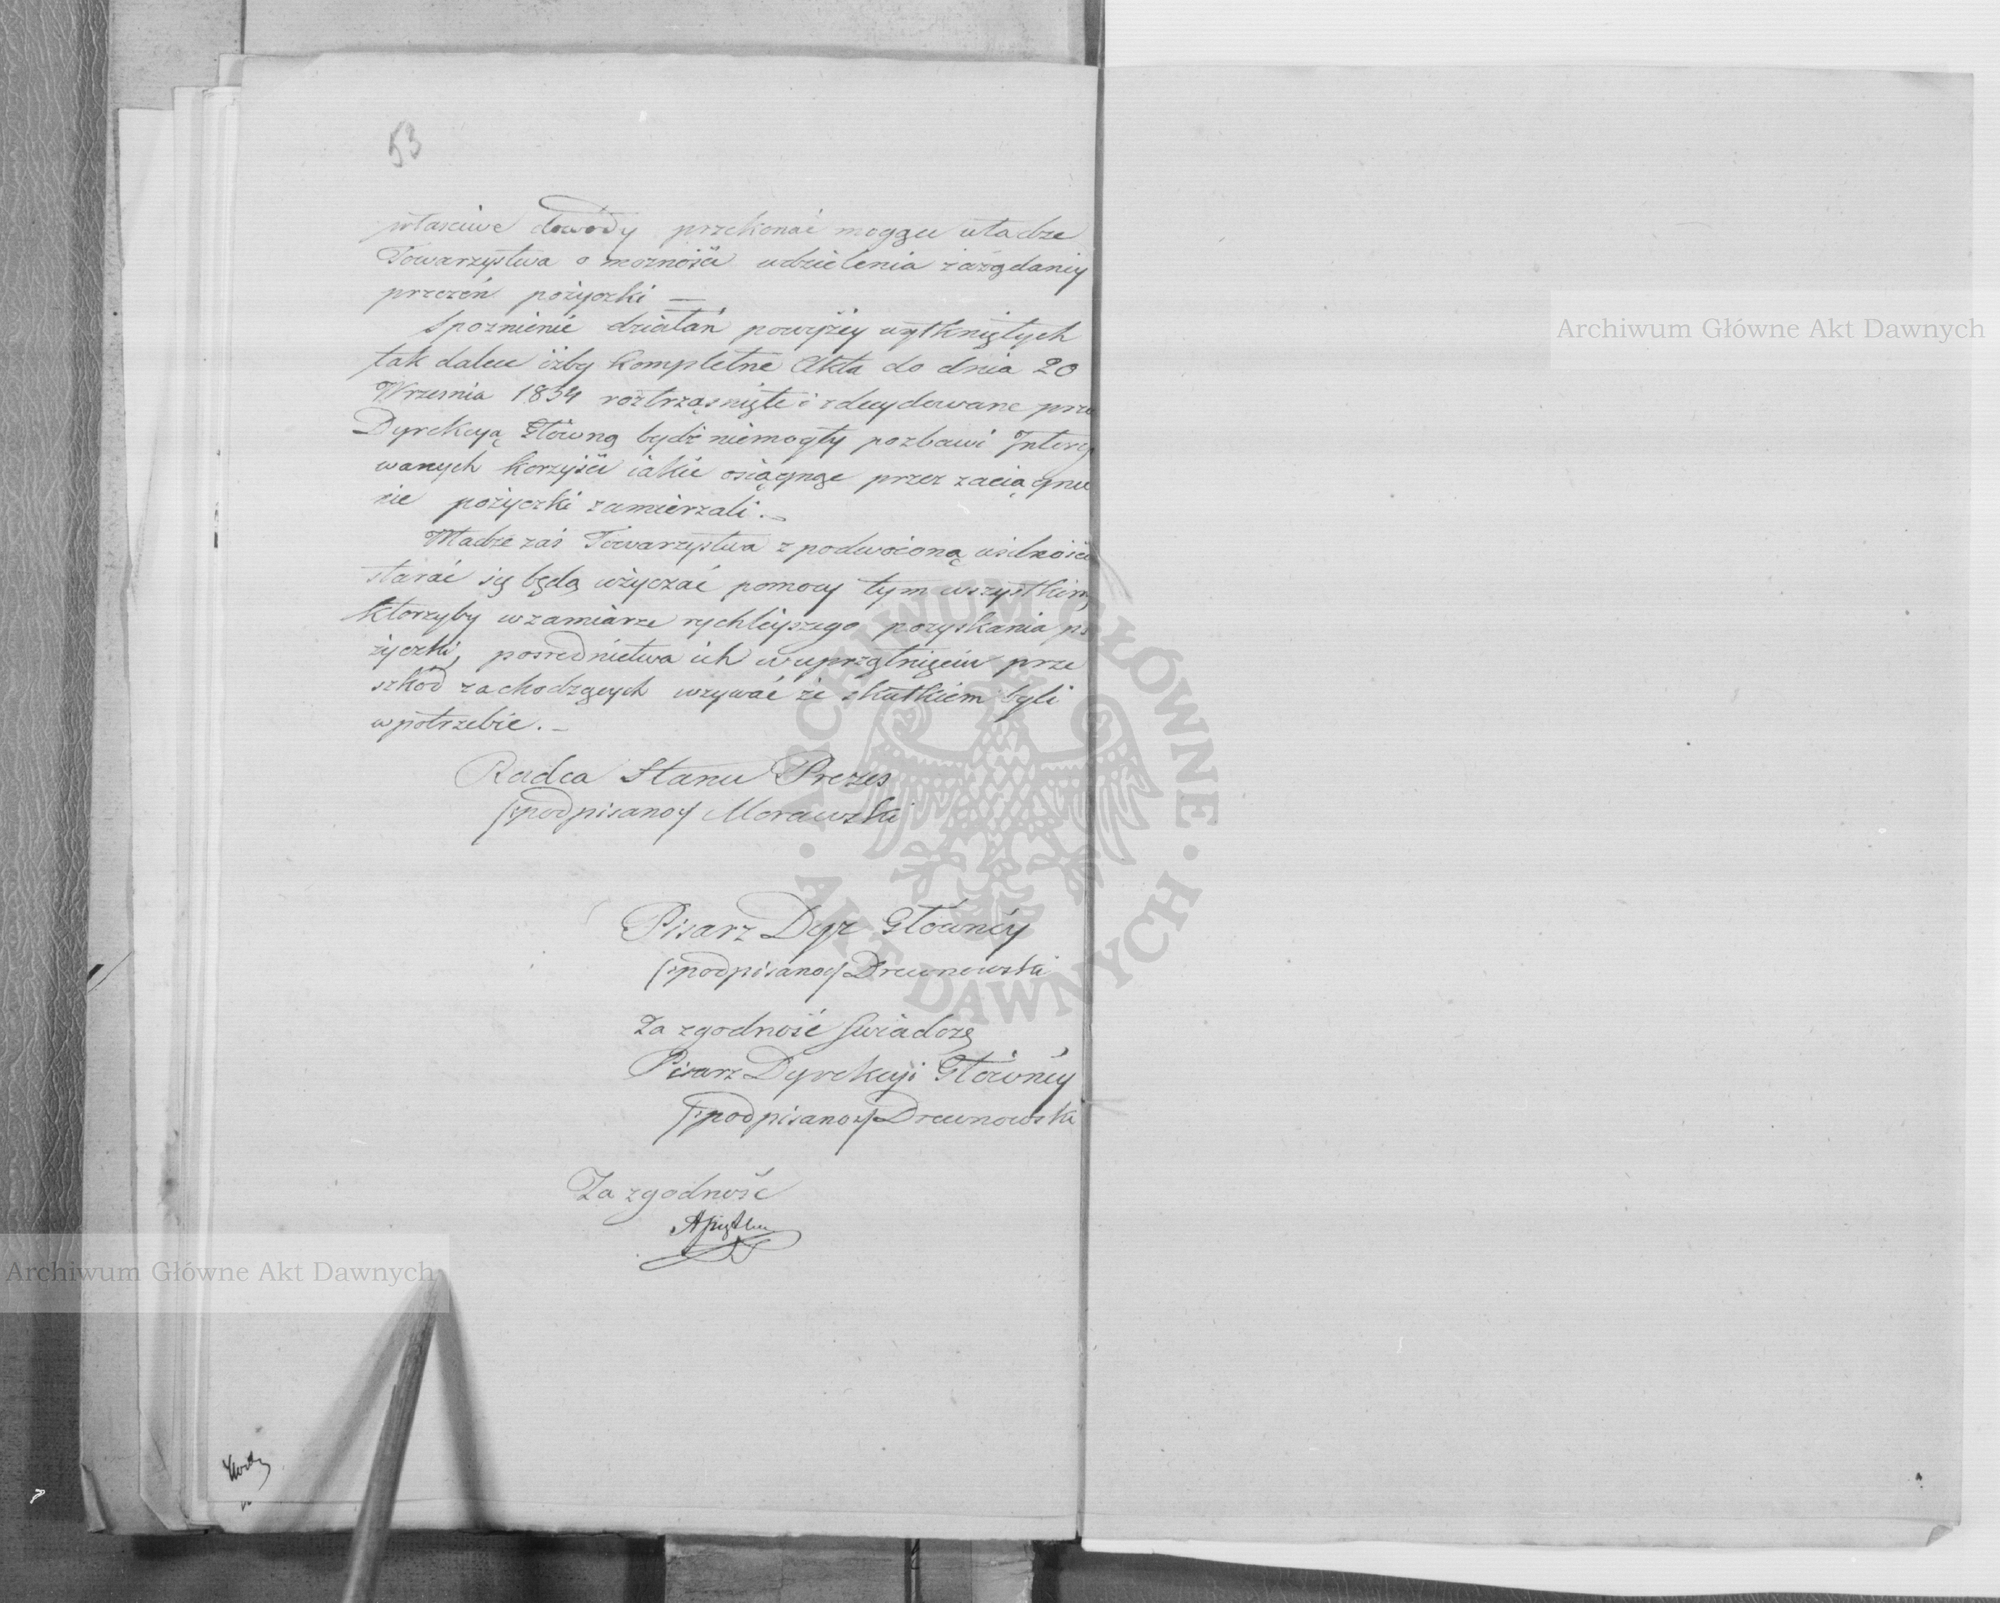 53
właściwe dowody przekonać mogące władze
Towarzystwa o możności udzielenia zażądaniej
przezeń pożyczki —
Spoznienie działań powyżey wytkniętych
tak dalece iżby kompletne Akta do dnia 20
Września 1834 roztrząsnięte i zdecydowane prze
Dyrekcyą Główną bydź niemogły pozbawi Intere
wanych korzyści iakie osiągnąć przez zaciągnie
nie pożyczki zamierzali. —
Władze zaś Towarzystwa z podwoioną usilnośc
starać się będą użyczać pomocy tym wszystkim
ktorzyby w zamiarze rychleyszego pozyskania po
życzki, posrednictwa ich w uprzątnięciu prze
szkod zachodzących wzywać ze skutkiem byli
w potrzebie. —
Radca Stanu Prezes
/:podpisano:/ Morawski
Pisarz Dyr Główney
/:podpisano:/ Drewnowski
Za zgodność świadczę
Pisarz Dyrekcyi Główney
/:podpisano:/ Drewnowski
Za zgodność
Archiwum Główne Akt Dawnych
Archiwum Główne Akt Dawnych
ARCHIWUM GŁÓWNE · AKT DAWNYCH ·